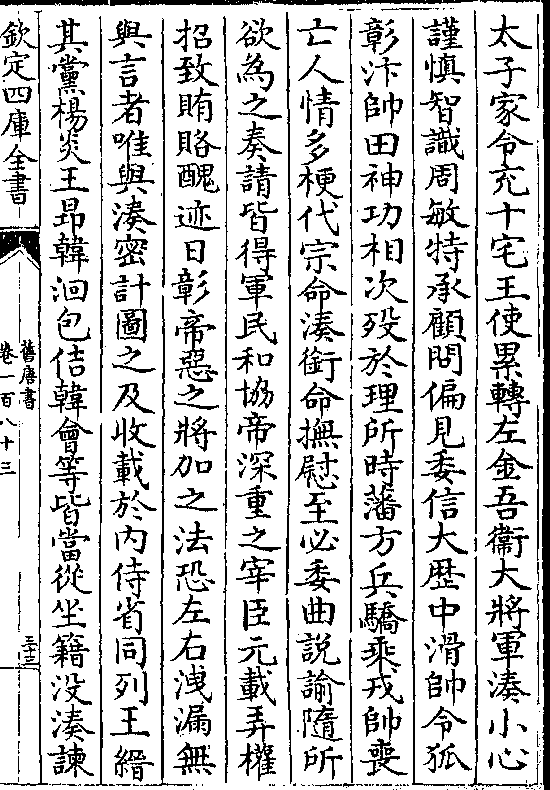 太子家令充十宅王使累轉左金吾衛大將軍湊小心
謹慎智識周敏特承顧問偏見委信大歴中滑帥令狐
彰汴帥田神功相次歿於理所時藩方兵驕乘戎帥喪
亡人情多梗代宗命湊銜命撫慰至必委曲說諭隨所
欲為之奏請皆得軍民和協帝深重之宰臣元載弄權
招致賄賂醜迹日彰帝惡之將加之法恐左右洩漏無
與言者唯與湊密計圖之及收載於内侍省同列王縉
其黨楊炎王昻韓洄包佶韓會等皆當從坐籍没湊諫
欽定四庫全書
舊唐書
卷一百八十三
三十三